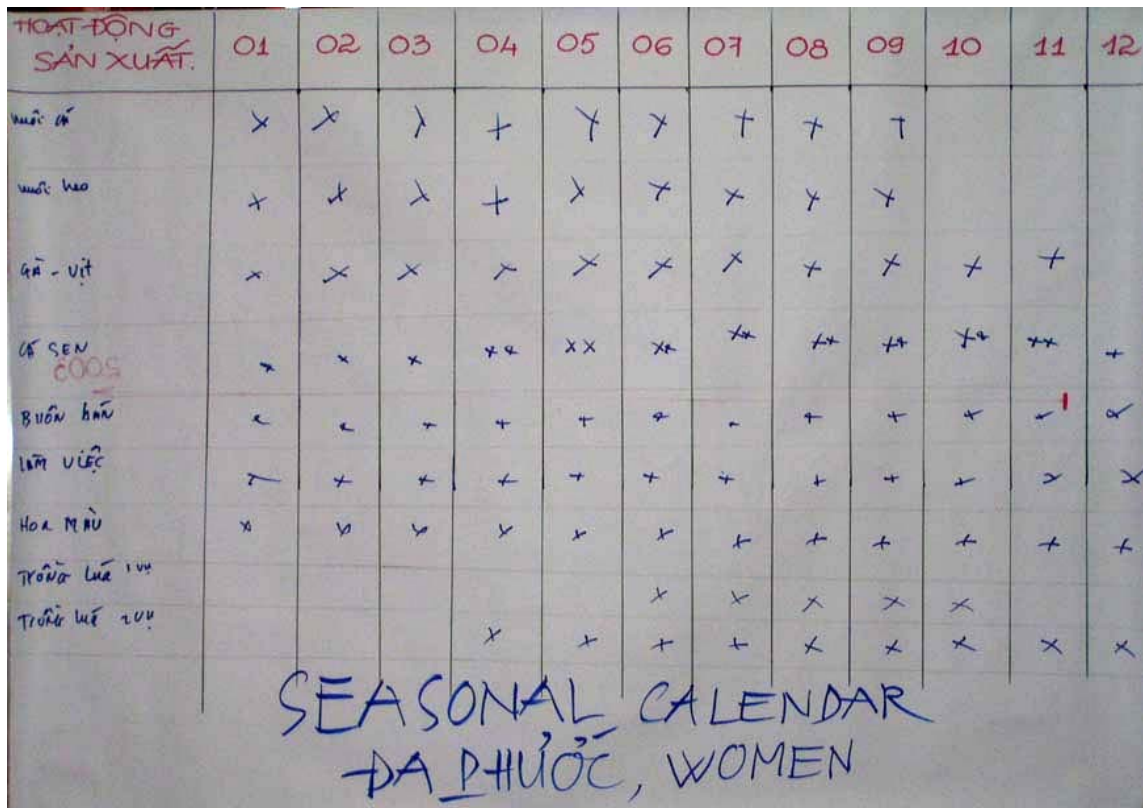 HOẠT ĐỘNG
SẢN XUẤT. 01 02 03 04 05 06 07 08 09 10 11 12
nuôi cá x x x x x x x x x
nuôi heo x x x x x x x x x
GÀ - Vịt x x x x x x x x x x x
SEN x x x xx xx xx xx xx xx xx xx x
BUÔN bÁN x x x x x x x x x x x x
LÀM VIỆC x x x x x x x x x x x x
HOA MÀU x x x x x x x x x x x x
TRỒNG LÚA 1 VỤ x x x x x
TRỒNG LÚA 2 VỤ x x x x x x x x x
SEASONAL CALENDAR
ĐA PHƯỚC, WOMEN